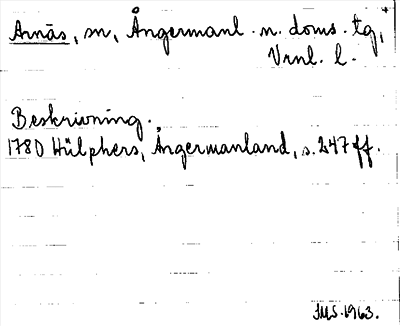 Arnäs, sn, Ångermanl. n. doms. tg,
Vrnl. l.
Beskrivning.
1780 Hülphers, Ångermanland, s. 247 ff.
JMS. 1963.